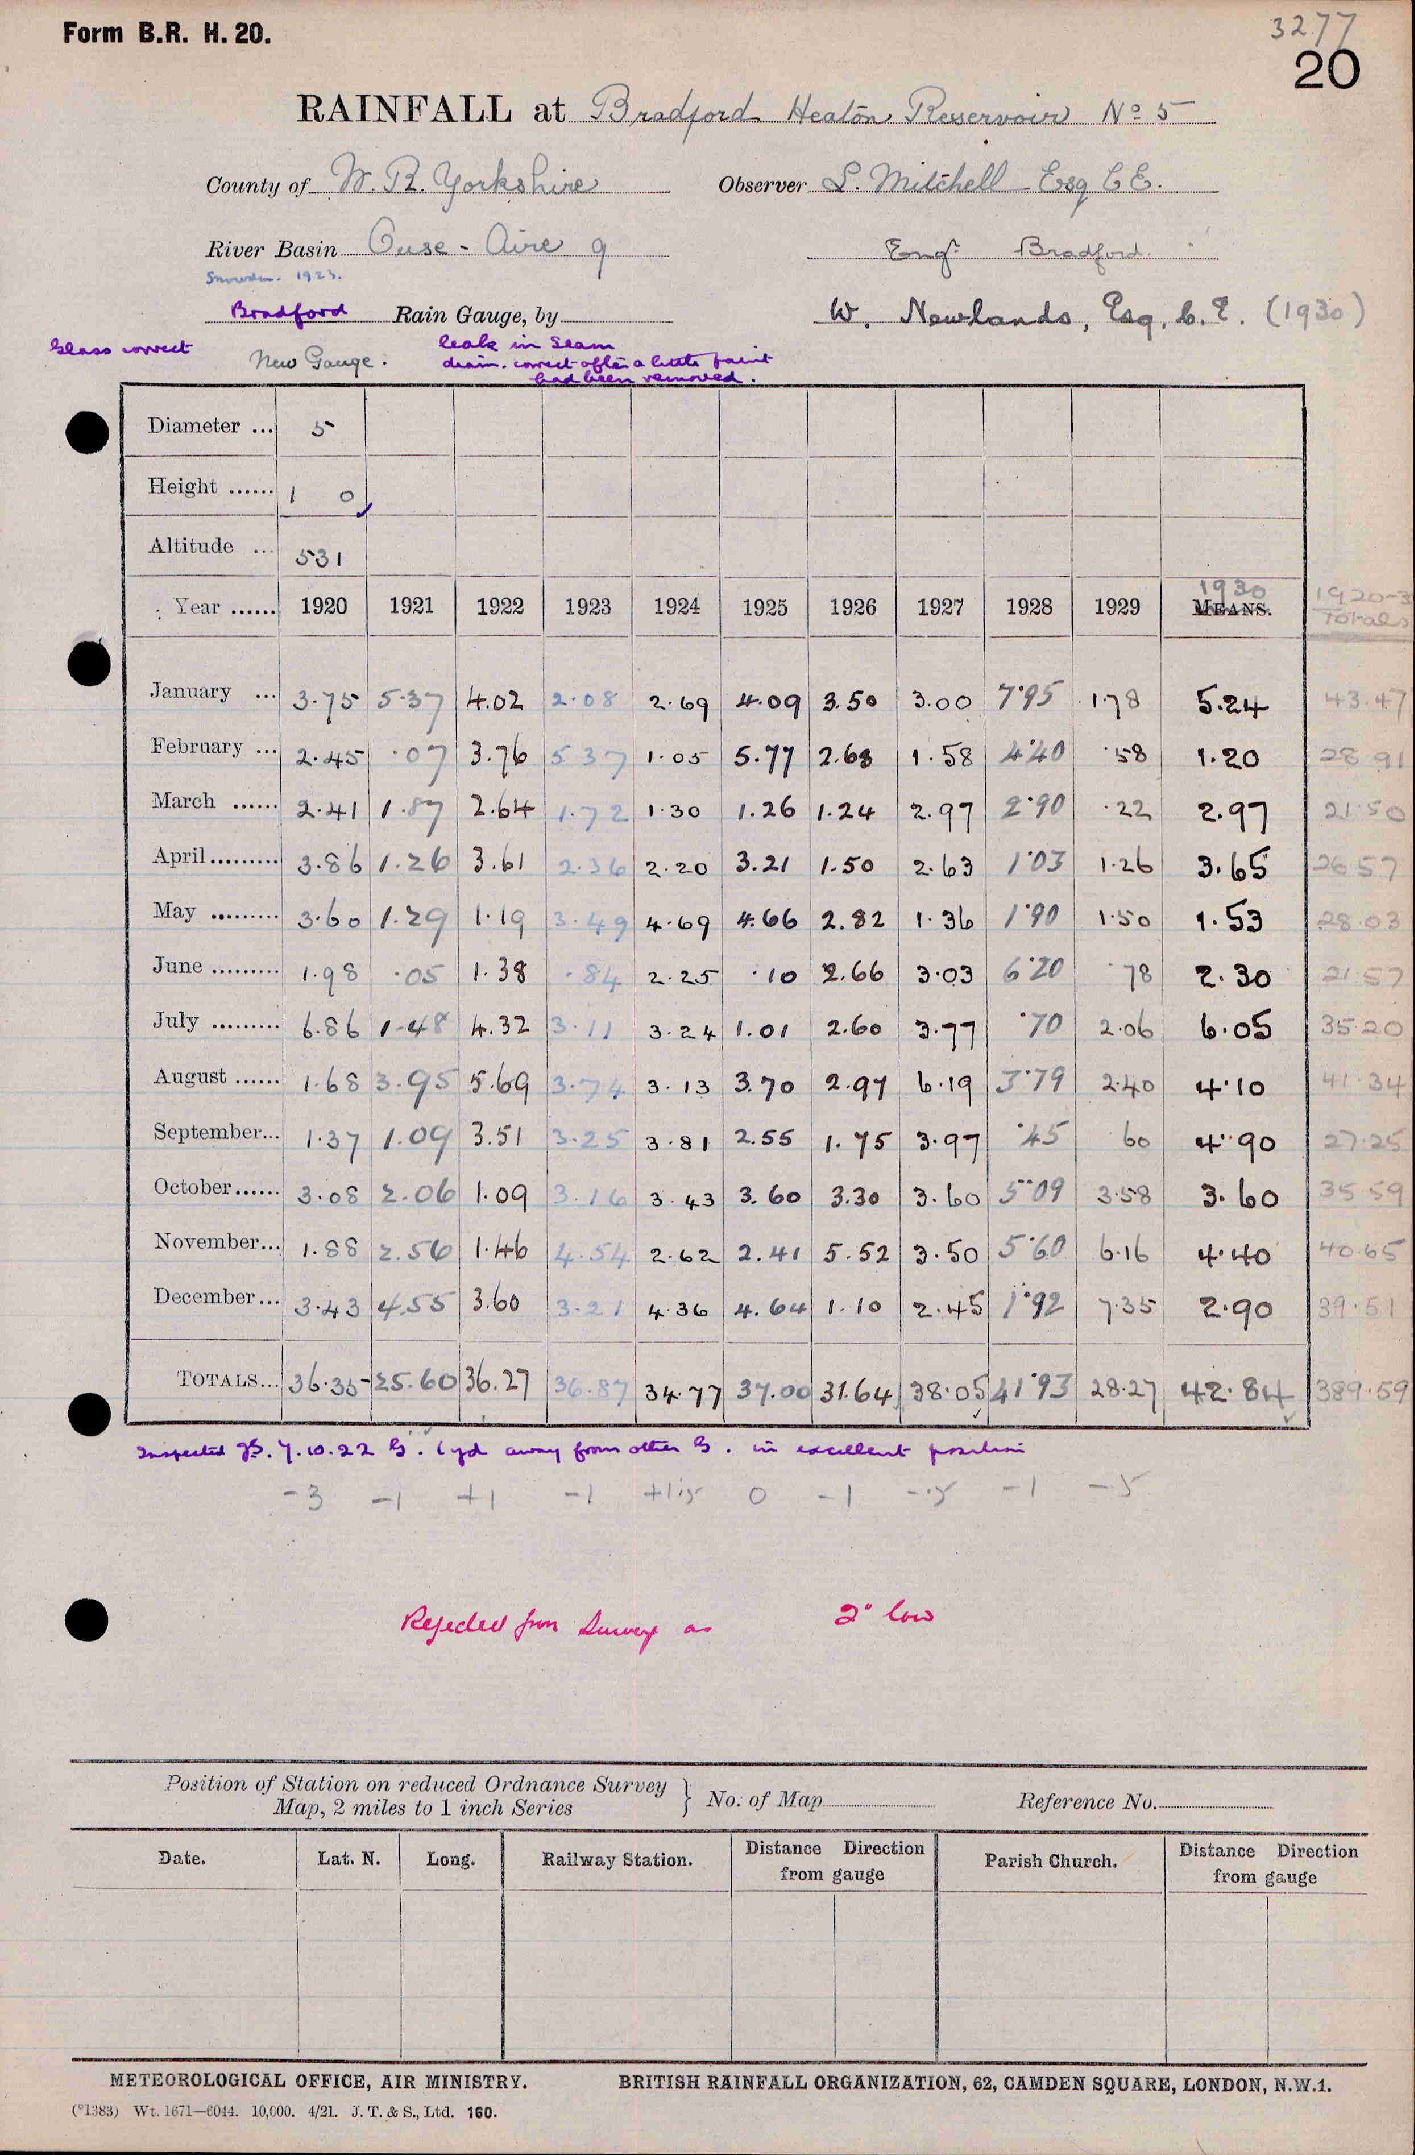 Form B.R. H. 20.
3277
20
RAINFALL at Bradford Heaton Reservoir No 5
County of W. R. Yorkshire Observer L. Mitchell Esq C.E.
River Basin Ouse - Aire 9 Engr Bradford.
Snowdon. 1923.
Bradford Rain Gauge, by W. Newlands, Esq, C.E. (1930)
Glass correct New Gauge. leak in seam
drain. correct after a little paint
had been removed.
Diameter ... 5
Height ...... 1 0
Altitude ... 531
Year ...... 1920 1921 1922 1923 1924 1925 1926 1927 1928 1929 1930 MEANS. 1920-3 Totals
January ... 3.75 5.37 4.02 2.08 2.69 4.09 3.50 3.00 7.95 1.78 5.24 43.47
February ... 2.45 .07 3.76 5.37 1.05 5.77 2.68 1.58 4.40 .58 1.20 28.91
March ...... 2.41 1.87 2.64 1.72 1.30 1.26 1.24 2.97 2.90 .22 2.97 21.50
April ......... 3.86 1.26 3.61 2.36 2.20 3.21 1.50 2.63 1.03 1.26 3.65 26.57
May ......... 3.60 1.29 1.19 3.49 4.69 4.66 2.82 1.36 1.90 1.50 1.53 28.03
June ......... 1.98 .05 1.38 .84 2.25 .10 2.66 3.03 6.20 .78 2.30 21.57
July ......... 6.86 1.48 4.32 3.11 3.24 1.01 2.60 3.77 .70 2.06 6.05 35.20
August ...... 1.68 3.95 5.69 3.74 3.13 3.70 2.97 6.19 3.79 2.40 4.10 41.34
September... 1.37 1.09 3.51 3.25 3.81 2.55 1.75 3.97 .45 60 4.90 27.25
October...... 3.08 2.06 1.09 3.16 3.43 3.60 3.30 3.60 5.09 3.58 3.60 35.59
November... 1.88 2.56 1.46 4.54 2.62 2.41 5.52 3.50 5.60 6.16 4.40 40.65
December... 3.43 4.55 3.60 3.21 4.36 4.64 1.10 2.45 1.92 7.35 2.90 39.51
TOTALS... 36.35 25.60 36.27 36.87 34.77 37.00 31.64 38.05 41.93 28.27 42.84 389.59
Inspected 7.10.22 G. 1 yd away from other G. in excellent position
-3 -1 +1 -1 +1.5 0 -1 -.5 -1 -5
Rejected from Survey as 2" low
Position of Station on reduced Ordnance Survey
Map, 2 miles to 1 inch Series } No. of Map Reference No.
Date. Lat. N. Long. Railway Station. Distance from gauge Direction Parish Church. Distance from gauge Direction
METEOROLOGICAL OFFICE, AIR MINISTRY. BRITISH RAINFALL ORGANIZATION, 62, CAMDEN SQUARE, LONDON, N.W.1.
(*1383) Wt. 1671—6044. 10,000. 4/21. J. T. & S., Ltd. 160.